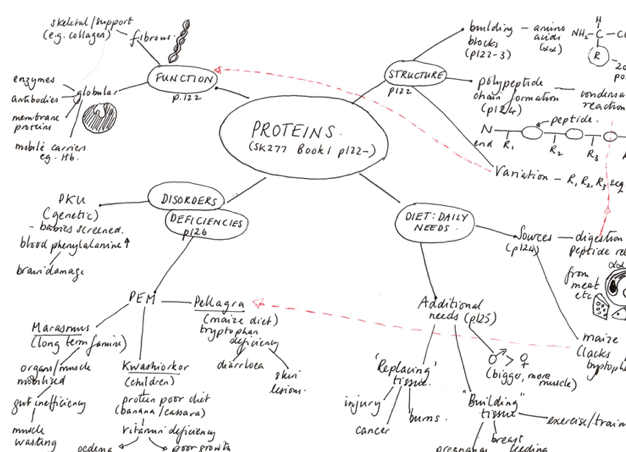 skeletal/support
(e.g. collagen)
fibrous
enzymes
antibodies
membrane
proteins
mobile carriers
eg. Hb.
globular
FUNCTION
p.122
PROTEINS.
(SK277 Book 1 p122-)
STRUCTURE
p122
building
blocks
(p122-3)
amino
acids
H
NH2 - C - CO
R
polypeptide
chain formation
(p124)
condensa
reaction
peptide.
N
end
R1
R2
R3
Variation - R1, R2, R3 seq
DISORDERS
DEFICIENCIES
p126
PKU
(genetic)
- babies screened.
blood phenylalanine ↑
brain damage
PEM
Pellagra
(maize diet)
tryptophan
deficiency
diarrhoea
skin
lesions.
Marasmus
(long term famine)
organ/muscle
mobilised
gut inefficiency
muscle
wasting
Kwashiorkor
(children)
protein poor diet
(banana/cassava)
vitamin deficiency
oedema
poor growth
DIET: DAILY
NEEDS.
Sources
(p124)
digestion
peptide
from
meat
etc
maize
(lacks
Additional
needs (p125)
♂ > ♀
(bigger, more
muscle)
'Replacing'
tissue.
injury
cancer
burns.
"Building"
tissue
exercise/train
breast
feeding